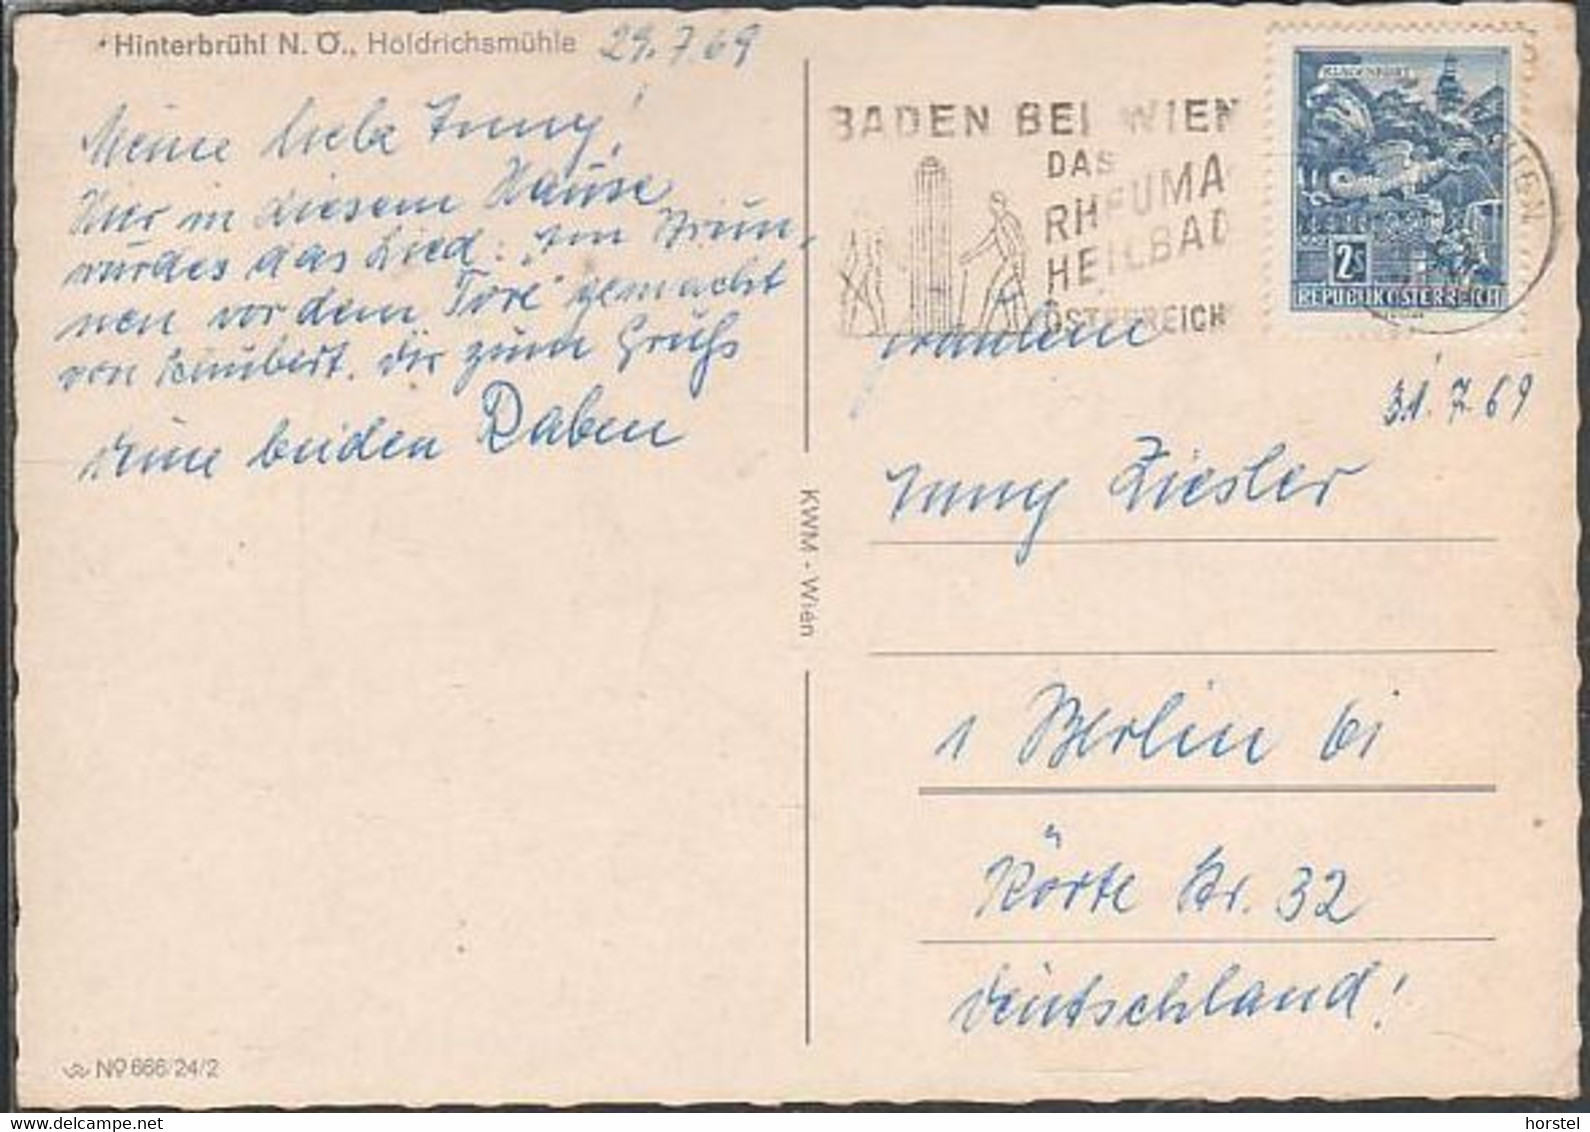 Hinterbrühl N. Ö., Höldrichsmühle 29.7.69
Meine liebe Jenny!
Hier in diesem Hause
wurde das Lied: „Am Brun-
nen vor dem Tore“ gemacht
von Schubert. Dir zum Gruß
deine beiden Raben
BADEN BEI WIEN
DAS
RHEUMA
HEILBAD
ÖSTERREICH
KLAGENFURT
2S
REPUBLIK ÖSTERREICH
WIEN
Fräulein
31.7.69
Jenny Ziesler
KWM - Wien
1 Berlin 61
Körte Str. 32
Deutschland!
No 666/24/2
horstel